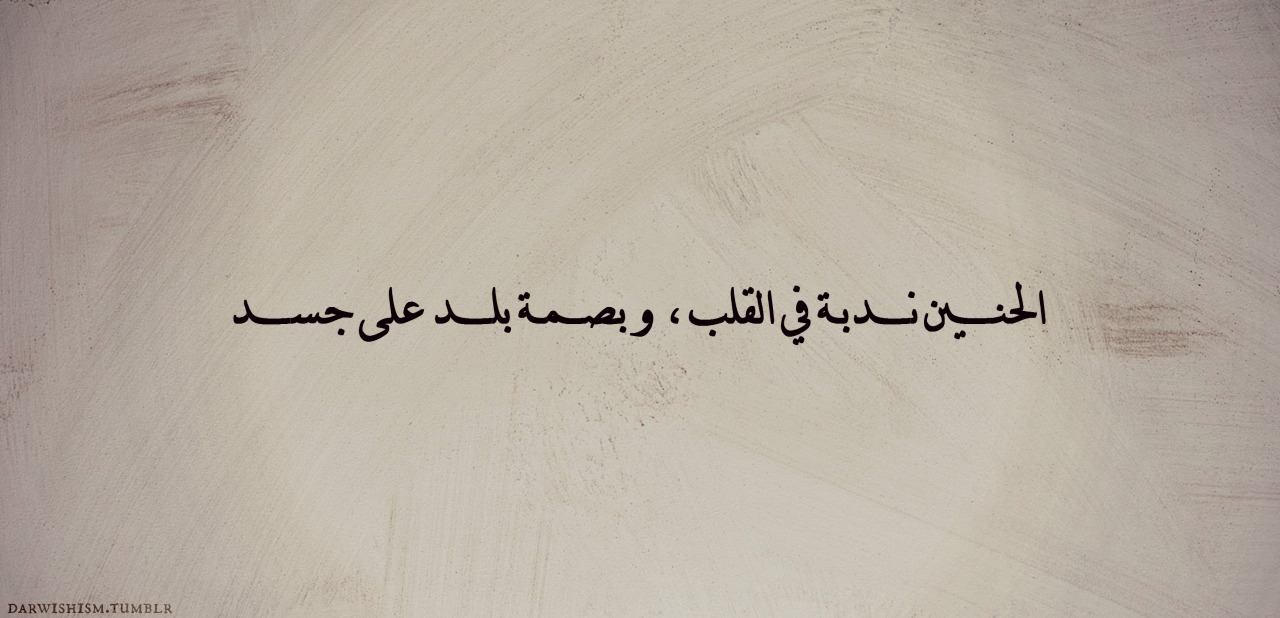 الحنين ندبة في القلب، وبصمة بلد على جسد
DARWISHISM.TUMBLR